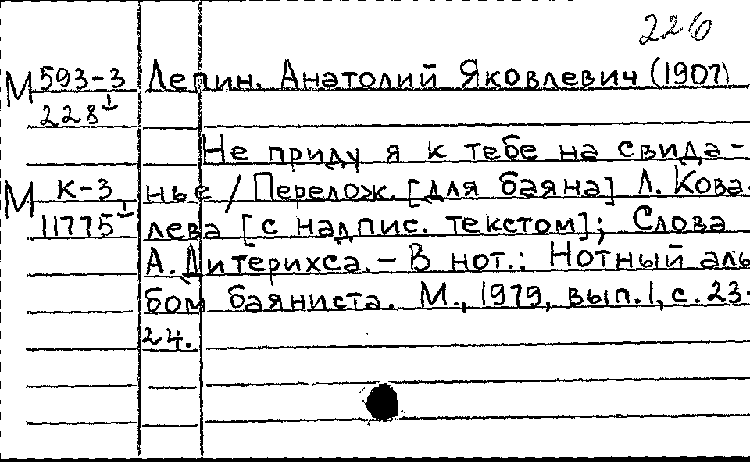 226
М 593-3 Лепин. Анатолий Яковлевич (1907)
228↓
Не приду я к тебе на свида-
М К-3 нье / Перелож. [для баяна] Л. Кова-
11775↓ лева [с надпис. текстом]; Слова
А. Дитерихса. - В нот.: Нотный аль
бом баяниста. М., 1979, вып. 1, с. 23-
24.